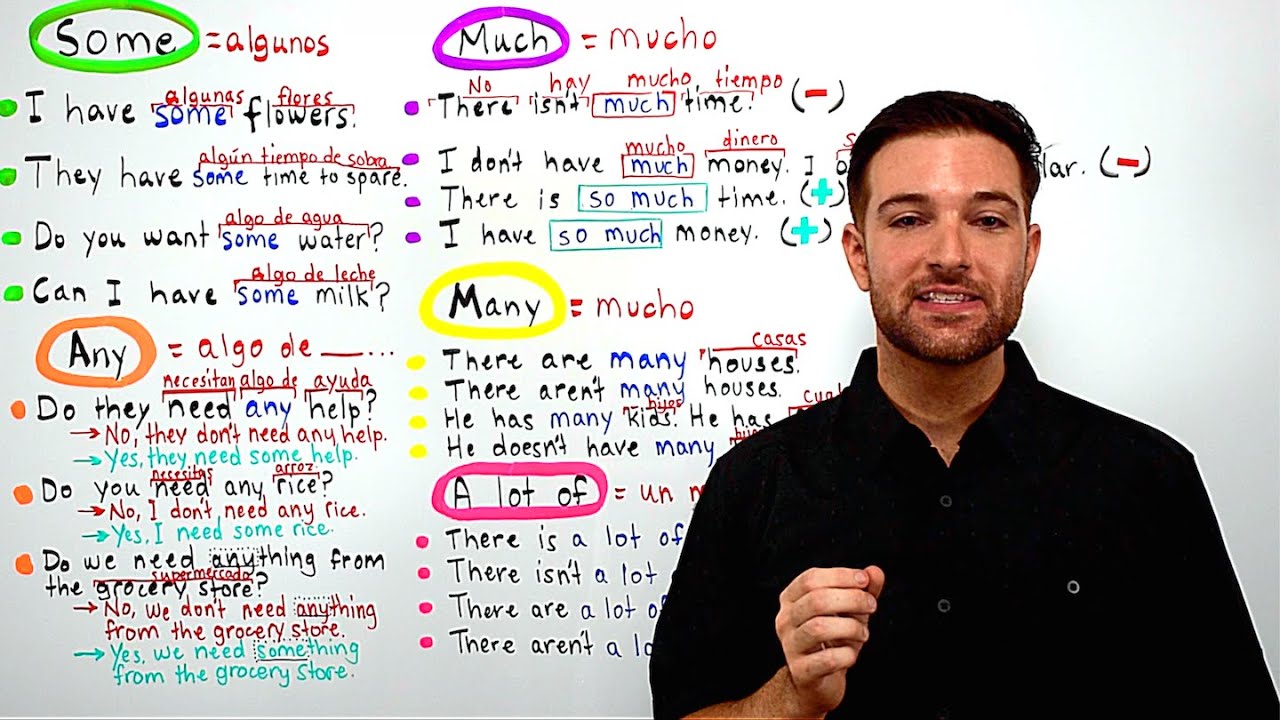 Some = algunos
algunas flores
I have some flowers.
algún tiempo de sobra
They have some time to spare.
algo de agua
Do you want some water?
algo de leche
Can I have some milk?
Any = algo de ___...
necesitan algo de ayuda
Do they need any help?
→ No, they don't need any help.
→ Yes, they need some help.
necesitas arroz
Do you need any rice?
→ No, I don't need any rice.
→ Yes, I need some rice.
Do we need anything from
supermercado
the grocery store?
→ No, we don't need anything
from the grocery store.
→ Yes, we need something
from the grocery store.
Much = mucho
No hay mucho tiempo
There isn't much time. (-)
mucho dinero
I don't have much money. I (-)
There is so much time. (+)
I have so much money. (+)
Many = mucho
casas
There are many houses.
There aren't many houses.
hijos
He has many kids. He has
He doesn't have many
A lot of = un
There is a lot of
There isn't a lot
There are a lot of
There aren't a